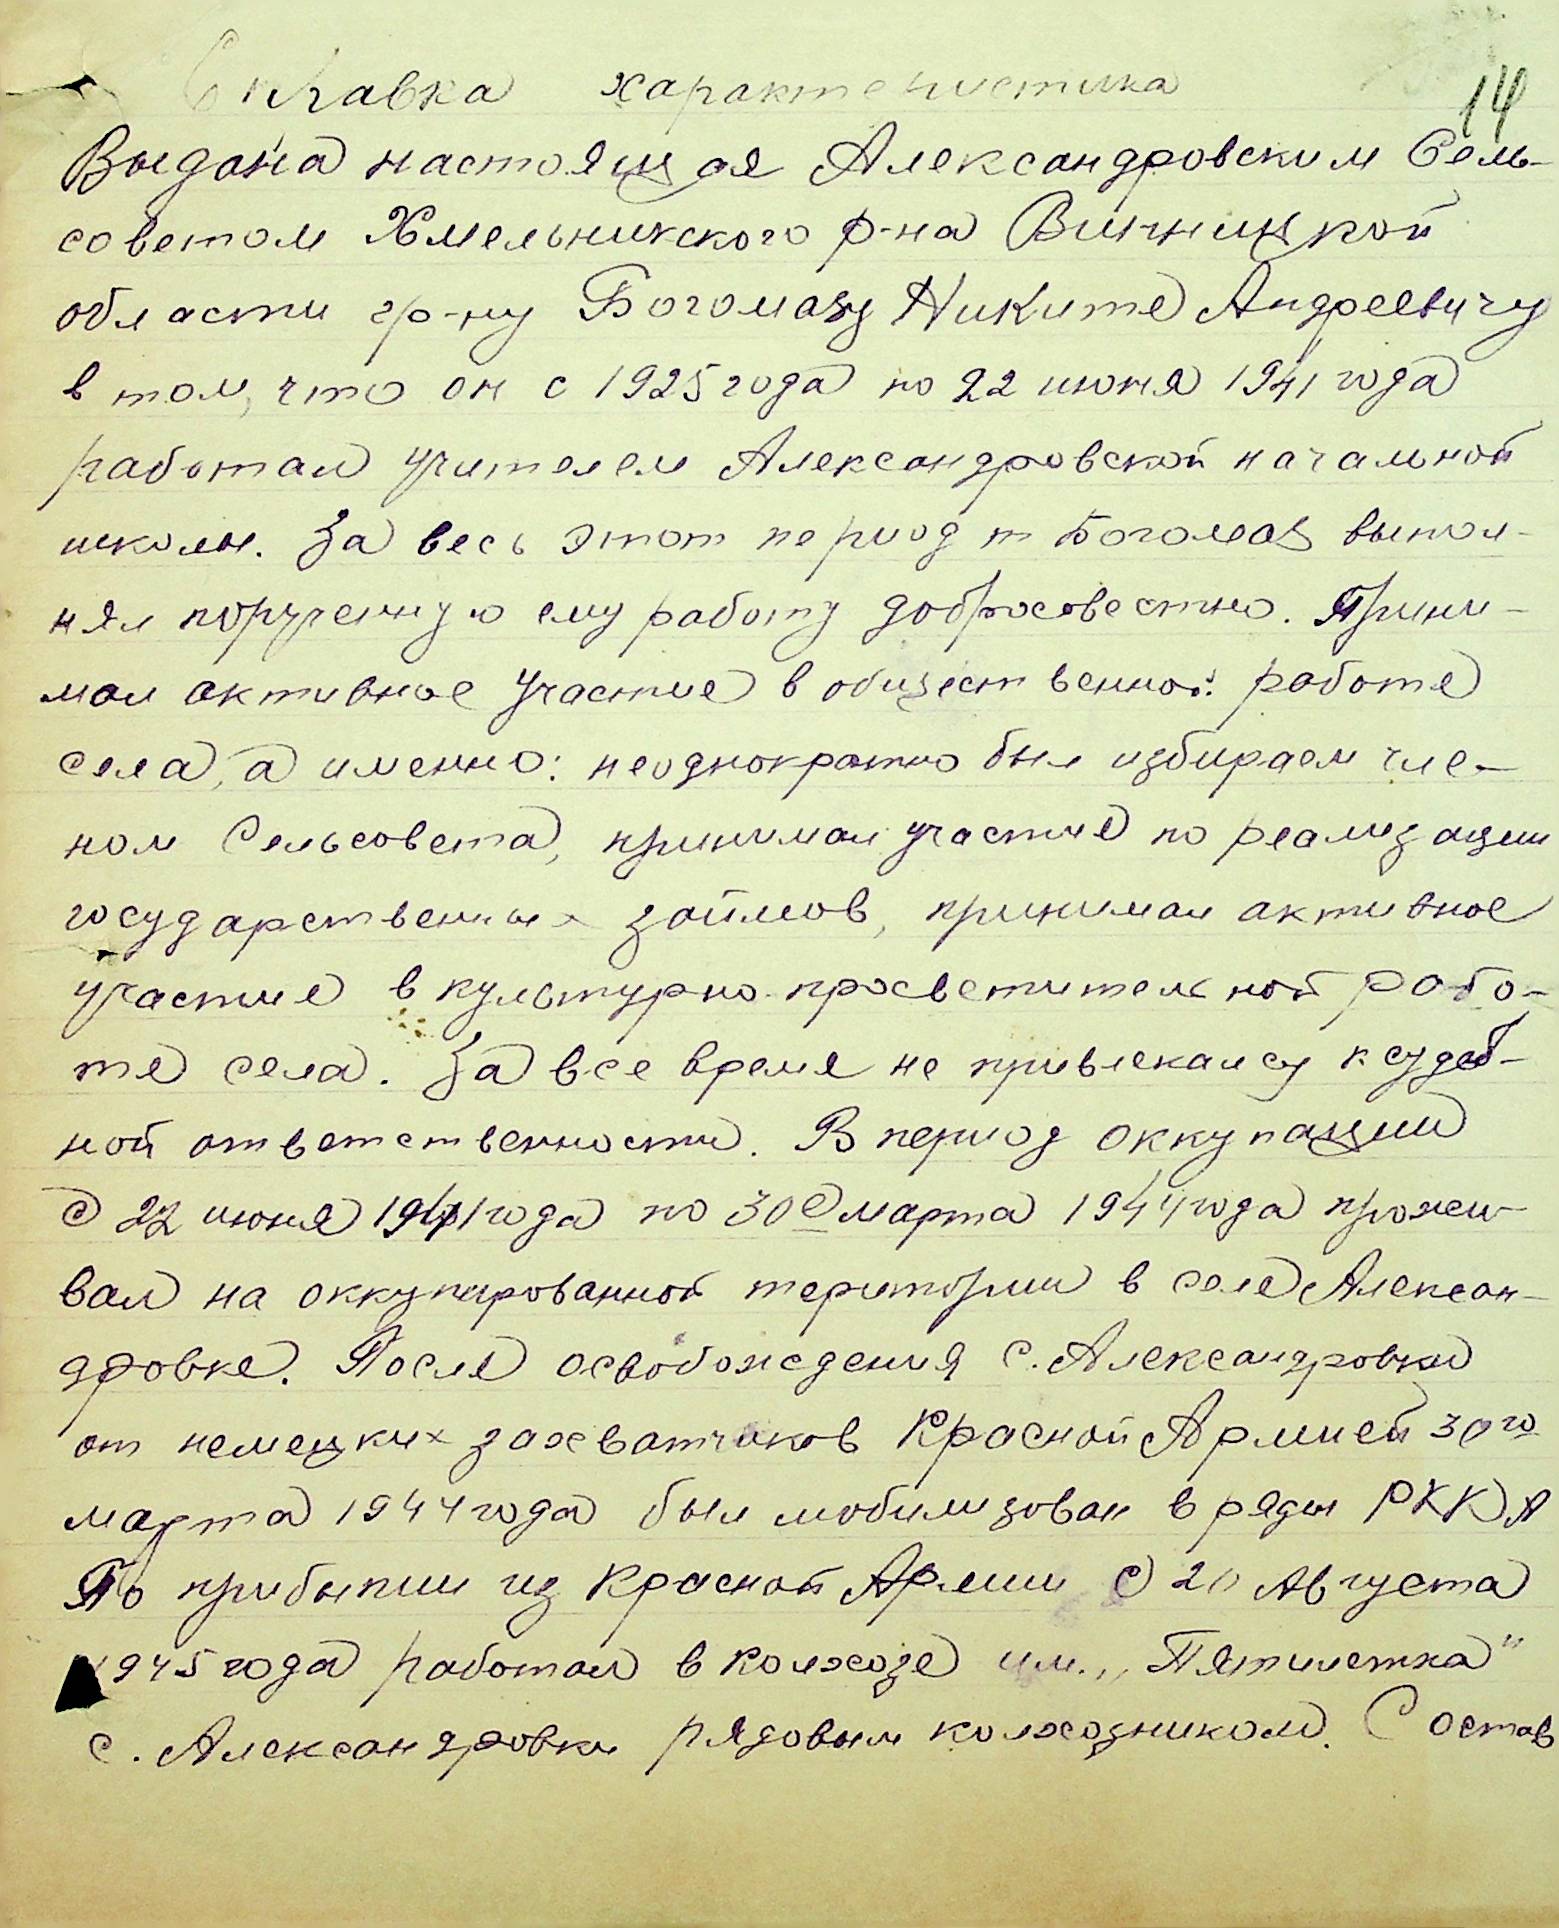 Справка характеристика
14
Выдана настоящая Александровским Сель-
советом Хмельникского р-на Винницкой
области гр-ну Богомазу Никите Андреевичу
в том, что он с 1925 года по 22 июня 1941 года
работал учителем Александровской начальной
школы. За весь этот период т Богомаз выпол-
нял порученную ему работу добросовестно. Прини-
мал активное участие в общественной работе
села, а именно: неоднократно был избираем чле-
ном Сельсовета, принимал участие по реализации
государственных займов, принимал активное
участие в культурно-просветительной рабо-
те села. За все время не привлекался к судеб-
ной ответственности. В период оккупации
с 22 июня 1941 года по 30е марта 1944 года прожи-
вал на оккупированной територии в селе Алексан-
дровке. После освобождения с. Александровки
от немецких захватчиков Красной Армией 30го
марта 1944 года был мобилизован в ряды РККА
По прибытии из Красной Армии с 20 Августа
1945 года работал в колхозе им. „Пятилетка"
с. Александровки рядовым колхозником. Состав